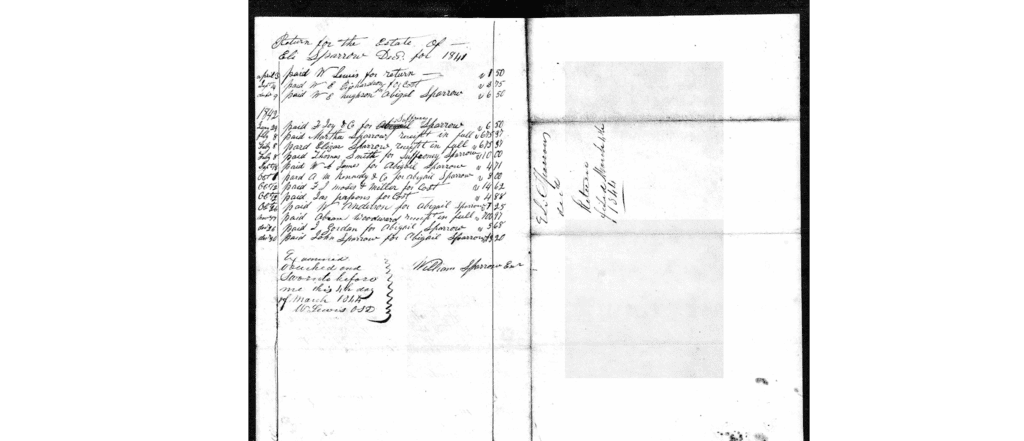 Return for the Estate Of
Eli Sparrow Decd for 1841
April 3 paid W Lewis for return — 1 50
Sept 4 paid W E Richardson for Cost 6 75
paid W E Hughson Abigal Sparrow 6 50
1842
paid F Joy & Co for Suffeney Sparrow 6 50
Feby 8 paid Martha Sparrow receipt in full 675 37
Feby 8 pard Elizar Sparrow receipt in full 675 37
Feby 8 paid Thomas Smith for Suffeney Sparrow 10 00
Sept paid W A Jones for Abigail Sparrow 4 71
Oct 1 pard A M Kennedy & Co for Abigail Sparrow 8 00
Oct paid F J Moses & Miller for Cost 14 62
Oct paid Jas parsons for Cost — 4 88
Oct paid W Anderson for Abigail Sparrow 25
Nov paid Abram Woodward receipt in full 97
paid J Jordan for Abigail Sparrow 5 68
paid John Sparrow for Abigail Sparrow 30
Examined
vouched and
Sworn to before
me this 4th day
of March 1844
W Lewis OSD
William Sparrow Exr
Eli Sparrow
decd
Returns